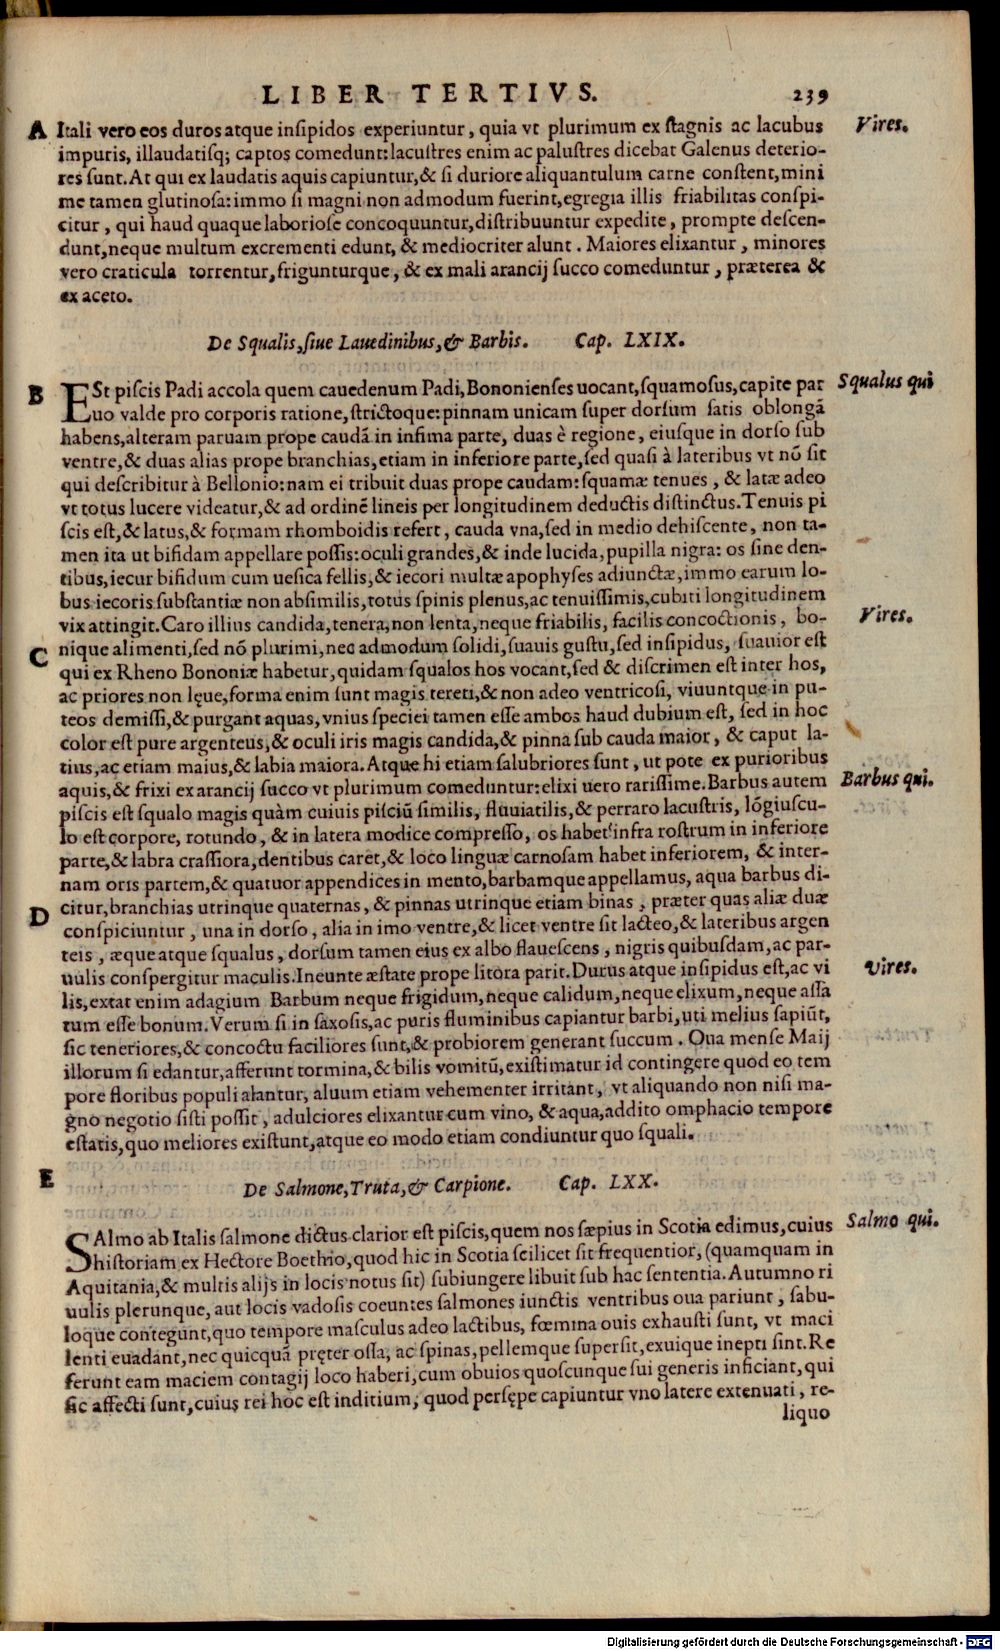 LIBER TERTIVS. 239
A Itali vero eos duros atque insipidos experiuntur, quia vt plurimum ex stagnis ac lacubus Vires.
impuris, illaudatisq; captos comedunt: lacustres enim ac palustres dicebat Galenus deterio-
res sunt. At qui ex laudatis aquis capiuntur, & si duriore aliquantulum carne constent, mini
me tamen glutinosa: immo si magni non admodum fuerint, egregia illis friabilitas conspi-
citur, qui haud quaque laboriose concoquuntur, distribuuntur expedite, prompte descen-
dunt, neque multum excrementi edunt, & mediocriter alunt. Maiores elixantur, minores
vero craticula torrentur, frigunturque, & ex mali arancij succo comeduntur, præterea &
ex aceto.
De Squalis, siue Lauedinibus, & Barbis. Cap. LXIX.
B ESt piscis Padi accola quem cauedenum Padi, Bononienses uocant, squamosus, capite par Squalus qui
uo valde pro corporis ratione, strictoque: pinnam unicam super dorsum satis oblongã
habens, alteram paruam prope caudã in infima parte, duas è regione, eiusque in dorso sub
ventre, & duas alias prope branchias, etiam in inferiore parte, sed quasi à lateribus vt nõ sit
qui describitur à Bellonio: nam ei tribuit duas prope caudam: squamæ tenues, & latæ adeo
vt totus lucere videatur, & ad ordinẽ lineis per longitudinem deductis distinctus. Tenuis pi
scis est, & latus, & formam rhomboidis refert, cauda vna, sed in medio dehiscente, non ta-
men ita ut bifidam appellare possis: oculi grandes, & inde lucida, pupilla nigra: os sine den-
tibus, iecur bifidum cum uesica fellis, & iecori multæ apophyses adiunctæ, immo earum lo-
bus iecoris substantiæ non absimilis, totus spinis plenus, ac tenuissimis, cubiti longitudinem
vix attingit. Caro illius candida, tenera, non lenta, neque friabilis, facilis concoctionis, bo- Vires.
C nique alimenti, sed nõ plurimi, nec admodum solidi, suauis gustu, sed insipidus, suauior est
qui ex Rheno Bononiæ habetur, quidam squalos hos vocant, sed & discrimen est inter hos,
ac priores non lęue, forma enim sunt magis tereti, & non adeo ventricosi, viuuntque in pu-
teos demissi, & purgant aquas, vnius speciei tamen esse ambos haud dubium est, sed in hoc
color est pure argenteus, & oculi iris magis candida, & pinna sub cauda maior, & caput la-
tius, ac etiam maius, & labia maiora. Atque hi etiam salubriores sunt, ut pote ex purioribus
aquis, & frixi ex arancij succo vt plurimum comeduntur: elixi uero rarissime. Barbus autem Barbus qui.
piscis est squalo magis quàm cuiuis pisciũ similis, fluuiatilis, & perraro lacustris, lõgiuscu-
lo est corpore, rotundo, & in latera modice compresso, os habet infra rostrum in inferiore
parte, & labra crassiora, dentibus caret, & loco linguæ carnosam habet inferiorem, & inter-
nam oris partem, & quatuor appendices in mento, barbamque appellamus, aqua barbus di-
D citur, branchias utrinque quaternas, & pinnas utrinque etiam binas, præter quas aliæ duæ
conspiciuntur, una in dorso, alia in imo ventre, & licet ventre sit lacteo, & lateribus argen
teis, æque atque squalus, dorsum tamen eius ex albo flauescens, nigris quibusdam, ac par-
uulis conspergitur maculis. Ineunte æstate prope litora parit. Durus atque insipidus est, ac vi Vires.
lis, extat enim adagium Barbum neque frigidum, neque calidum, neque elixum, neque assa
tum esse bonum. Verum si in saxosis, ac puris fluminibus capiantur barbi, uti melius sapiũt,
sic teneriores, & concoctu faciliores sunt, & probiorem generant succum. Oua mense Maij
illorum si edantur, afferunt tormina, & bilis vomitũ, existimatur id contingere quod eo tem
pore floribus populi alantur, aluum etiam vehementer irritant, vt aliquando non nisi ma-
gno negotio sisti possit, adulciores elixantur cum vino, & aqua, addito omphacio tempore
estatis, quo meliores existunt, atque eo modo etiam condiuntur quo squali.
E De Salmone, Truta, & Carpione. Cap. LXX.
SAlmo ab Italis salmone dictus clarior est piscis, quem nos sæpius in Scotia edimus, cuius Salmo qui.
historiam ex Hectore Boethio, quod hic in Scotia scilicet sit frequentior, (quamquam in
Aquitania, & multis alijs in locis notus sit) subiungere libuit sub hac sententia. Autumno ri
uulis plerunque, aut locis vadosis coeuntes salmones iunctis ventribus oua pariunt, sabu-
loque contegunt, quo tempore masculus adeo lactibus, fœmina ouis exhausti sunt, vt maci
lenti euadant, nec quicquã pręter ossa, ac spinas, pellemque supersit, exuique inepti sint. Re
ferunt eam maciem contagij loco haberi, cum obuios quoscunque sui generis inficiant, qui
sic affecti sunt, cuius rei hoc est inditium, quod persępe capiuntur vno latere extenuati, re-
liquo
Digitalisierung gefördert durch die Deutsche Forschungsgemeinschaft - DFG